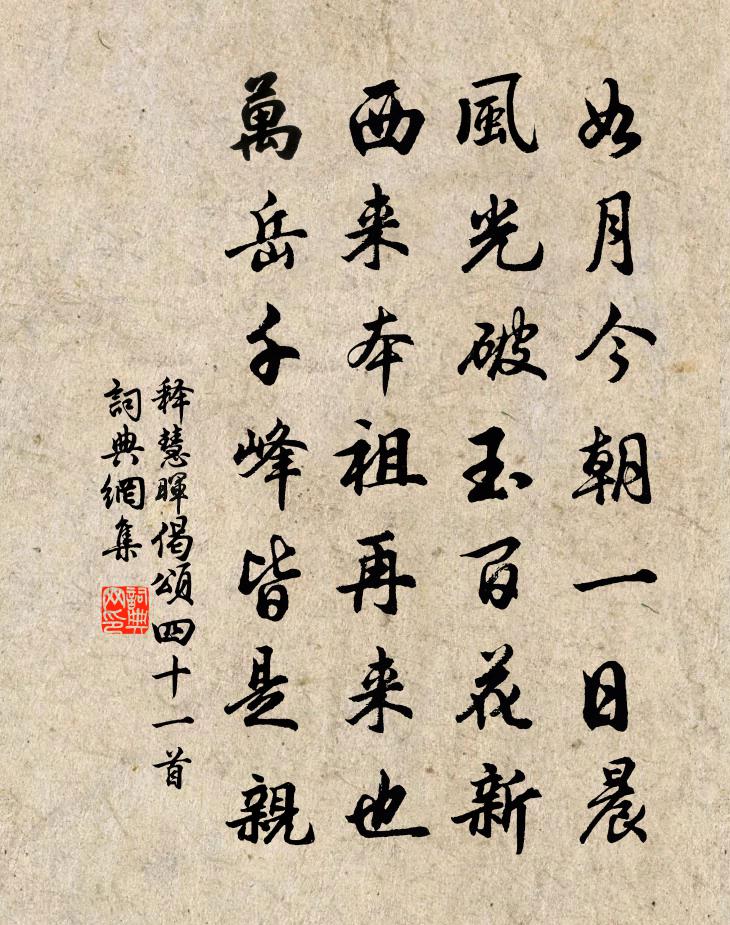 如月今朝一日晨
風光破玉百花新
西来本祖再来也
萬岳千峰皆是親
释慧暉偈頌四十一首
詞典網集
詞典网印